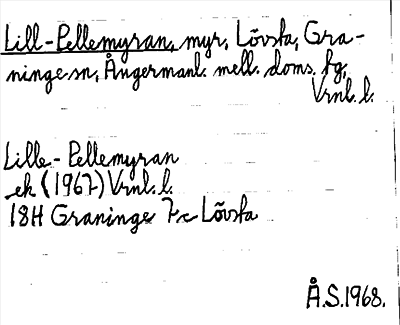 Lill-Pellemyran, myr, Lövsta, Gra-
ninge sn, Ångermanl. mell. doms. fg,
Vrnl. l.
Lille-Pellemyran
ek (1967) Vrnl. l.
18H Graninge 7c Lövsta
Å.S.1968.